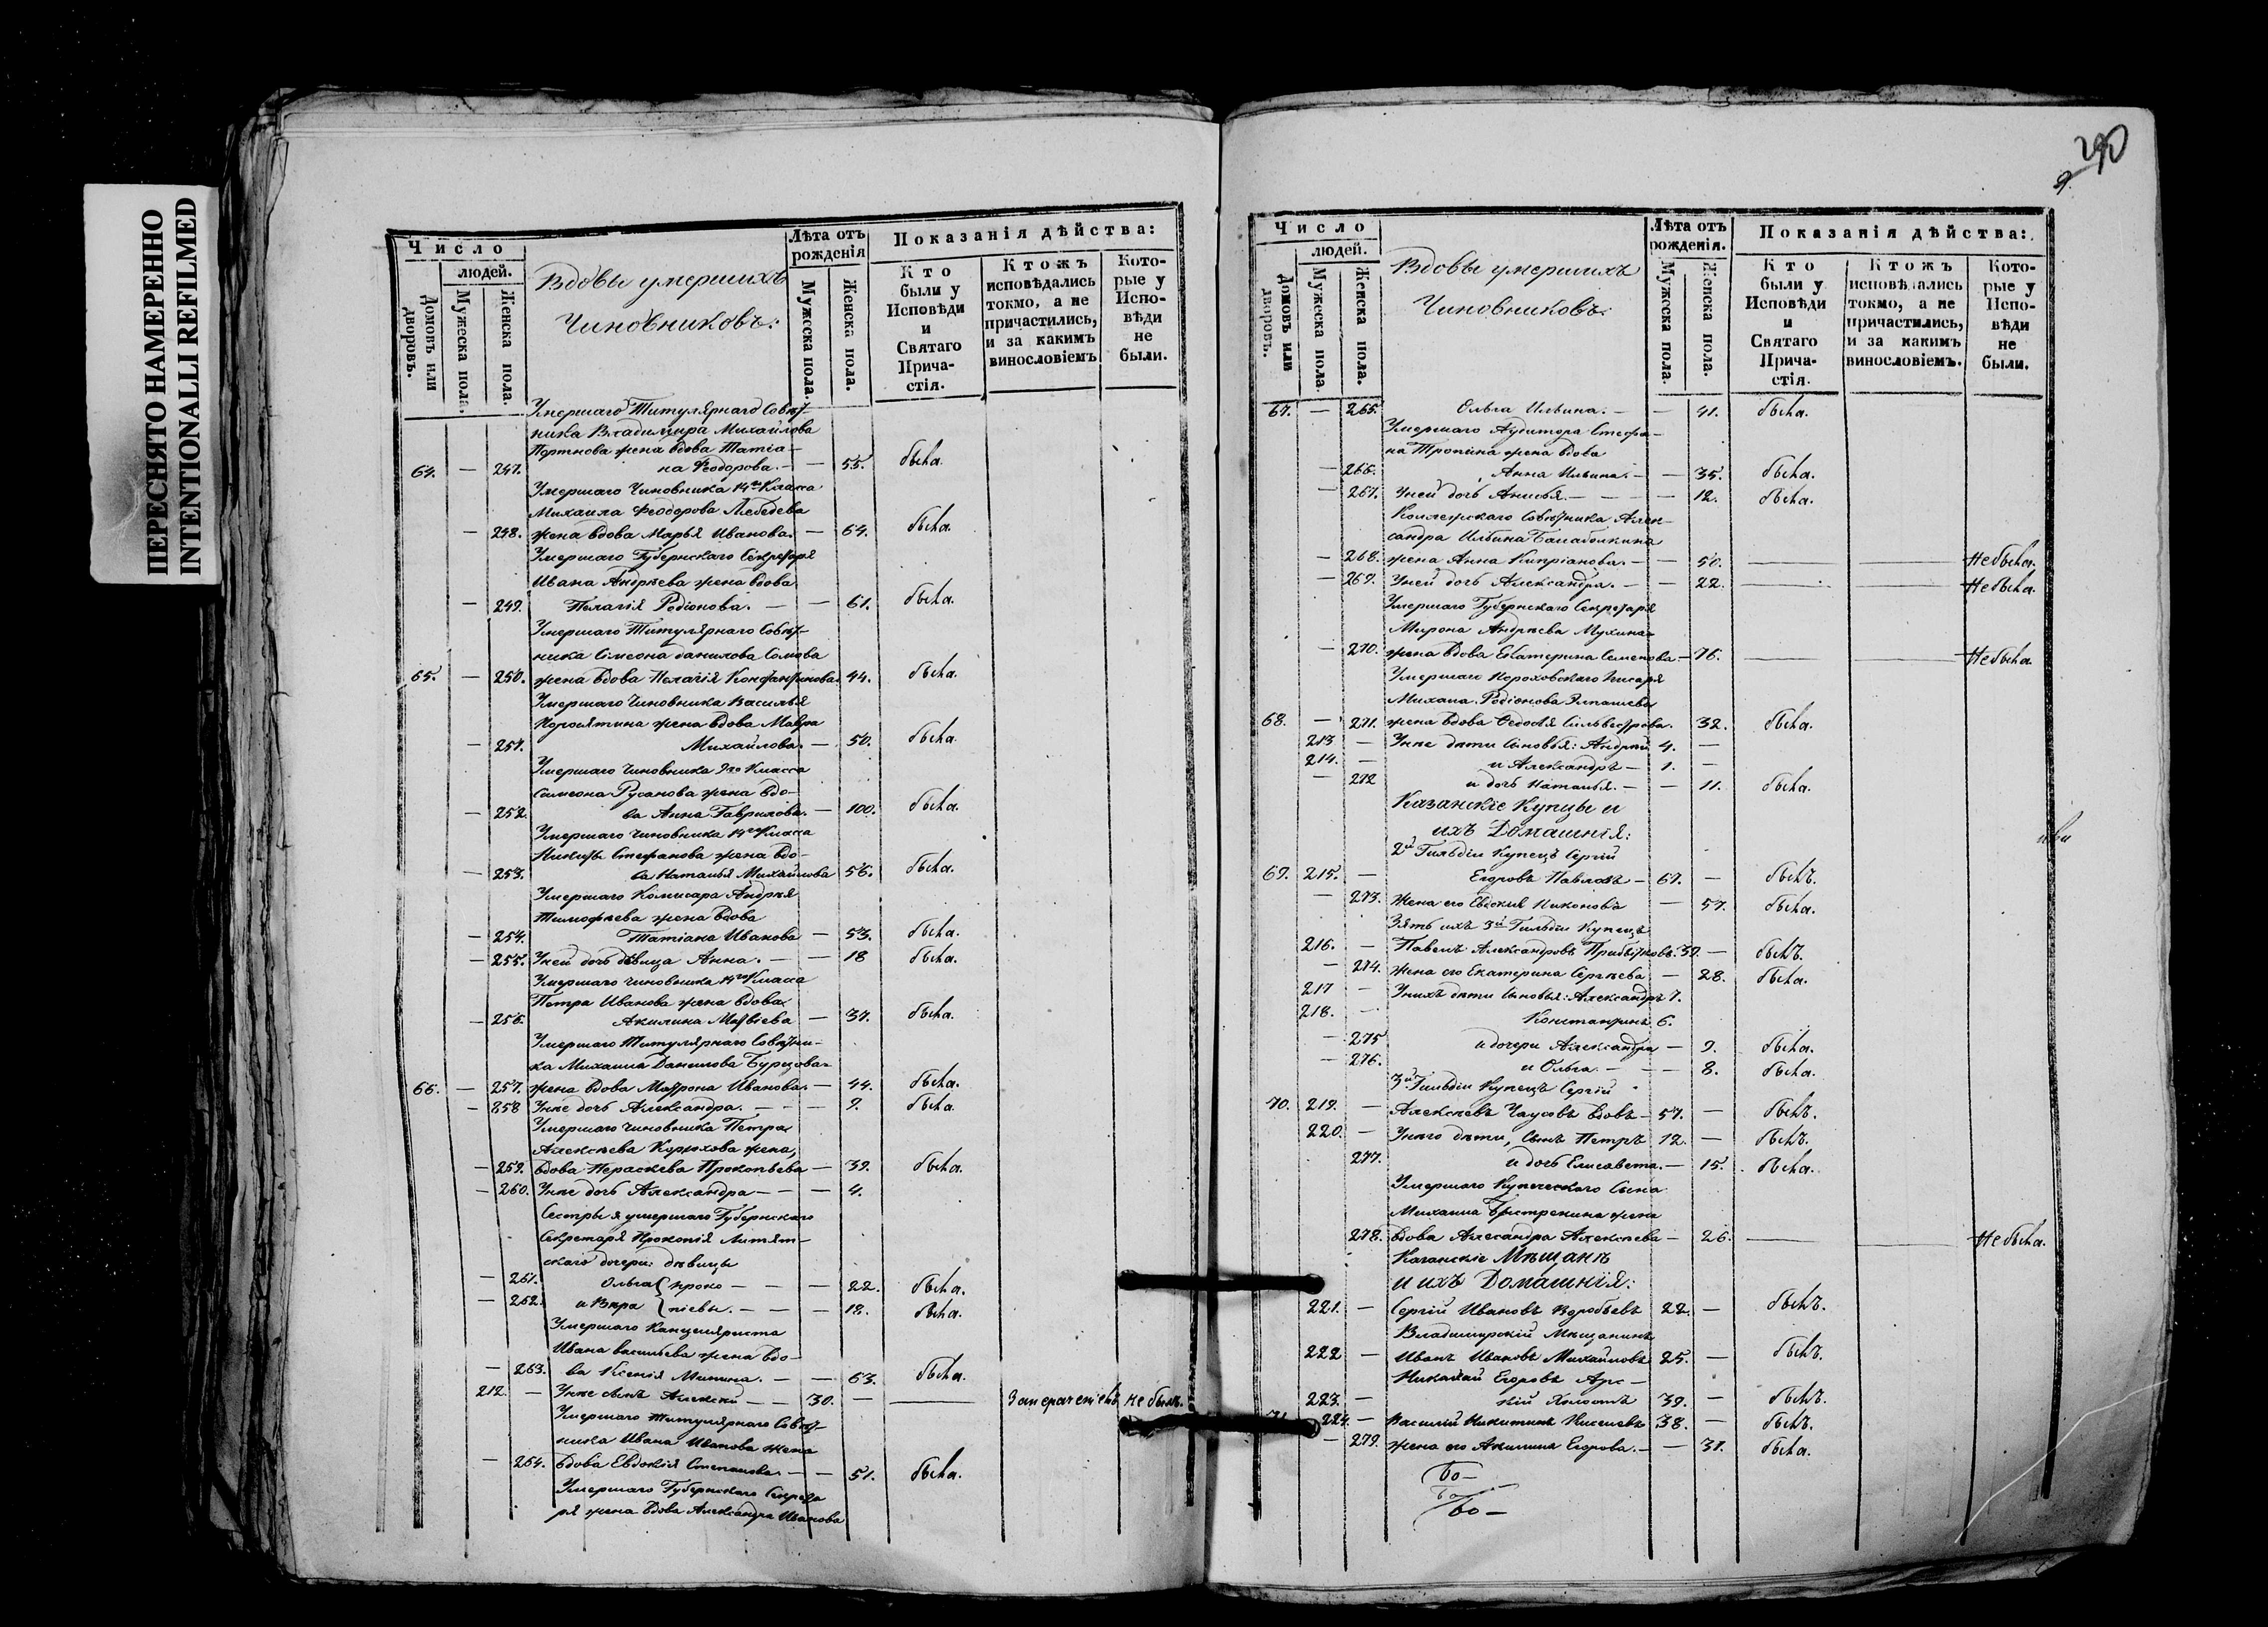 ПЕРЕСНЯТО НАМЕРЕННО
INTENTIONALLI REFILMED
Число
людей.
Домовъ или дворовъ.
Мужеска пола.
Женска пола.
Вдовы умершихъ
Чиновниковъ:
Лѣта отъ рожденія
Мужеска пола.
Женска пола.
Показанія дѣйства:
Кто были у Исповѣди и Святаго Прича-стія.
Ктожъ исповѣдались токмо, а не причастились, и за какимъ винословіемъ
Кото-рые у Испо-вѣди не были.
Умершаго Титулярнаго Совѣт-
ника Владимира Михайлова
Портнова жена вдова Татіа-
64. — 247. на Феодорова. — — 55. была.
Умершаго Чиновника 14го Класса
Михаила Феодорова Лебедева
— 248. жена вдова Марья Иванова. — 64. была.
Умершаго Губернскаго Секретаря
Ивана Андреева жена вдова
— 249. Пелагія Родіонова. — — 61. была.
Умершаго Титулярнаго Совѣт-
ника Симеона Данилова Сомова
65. — 250. жена вдова Пелагія Константинова. 44. была.
Умершаго Чиновника Василья
жена вдова Мавра
— 251. Михайлова. — 50. была.
Умершаго Чиновника 9го Класса
Симеона Русанова жена вдо-
— 252. ва Анна Гаврилова. — 100. была.
Умершаго Чиновника 14го Класса
Никиты Стефанова жена вдо-
— 253. ва Наталья Михайлова 56. была.
Умершаго Комисара Андрея
Тимофеева жена вдова
— 254. Татіана Иванова — 53. была.
— 255. Уней дочь дѣвица Анна. — — 18 была.
Умершаго Чиновника 14го Класса
Петра Иванова жена вдова
— 256. Акилина Матвіева — 37. была.
Умершаго Титулярнаго Совѣтни-
ка Михаила Данилова Бурцова
66. — 257. жена вдова Матрона Иванова. — 44. была.
— 258 Унее дочь Александра. — — — 9. была.
Умершаго Чиновника Петра
Алексѣева жена,
— 259. вдова Параскева Прокопьева — 39. была.
— 260. Унее дочь Александра — — — 4.
Сестры я умершаго Губернскаго
Секретаря Прокопія
скаго дочери: дѣвицы
— 261. Ольга { Проко — — — 22. была.
— 262. и Вѣра { піевы. — — — 18. была.
Умершаго Канцеляриста
Ивана Васильева жена вдо-
— 263. ва Ксенія Минина. — — 63. была.
212. — Унее сынъ Алексѣй — — 30. — — не былъ.
Умершаго Титулярнаго Совѣт-
ника Ивана Иванова жена
— 264. вдова Евдокія Степанова. — — 51. была.
Умершаго Губернскаго Секрета
ря жена вдова Александра Иванова
290
9.
Число
людей.
Домовъ или дворовъ.
Мужеска пола.
Женска пола.
Вдовы умершихъ
Чиновниковъ:
Лѣта отъ рожденія.
Мужеска пола.
Женска пола.
Показанія дѣйства:
Кто были у Исповѣди и Святаго Прича-стія.
Ктожъ исповѣдались токмо, а не причастились, и за какимъ винословіемъ.
Кото-рые у Испо-вѣди не были.
67. — 265. Ольга Ильина. — — 41. была.
Умершаго Аудитора Стефа-
на Тропина жена вдова
— 266. Анна Ильина. — — 35. была.
— 267. Уней дочь Анисья. — — — 12. была.
Коллежскаго Совѣтника Алек-
сандра Ильина
— 268. жена Анна Кипріанова. — — 50. — — Не была.
— 269. Уней дочь Александра. — — 22. — — Не была.
Умершаго Губернскаго Секретаря
Мирона Андреева Мухина
— 270. жена вдова Екатерина Семенова — 76. — — Не была.
Умершаго Пороховскаго Писаря
Михаила Родіонова
68. — 271. жена вдова Федосія Сильвестрова. 32. была.
213 — Унее дѣти Сыновья: Андрей 4. —
214. — и Александръ — 1. —
— 272 и дочь Наталья. — — 11. была.
Казанскіе Купцы и
ихъ Домашнія:
2й Гильдіи Купецъ Сергій
69. 215. — Егоровъ Павловъ — 61. — былъ.
— 273. Жена его Евдокія Никонова — 57. была.
Зять ихъ 3й Гильдіи Купецъ
216. — Павелъ Александровъ Прибытковъ. 39. — былъ.
— 274. Жена его Екатерина Сергѣева — 28. была.
217 — Унихъ дѣти Сыновья: Александръ 7.
218. — Константинъ 6.
— 275 и дочери Александра — 9. была.
— 276. и Ольга. — — — 8. была.
3й Гильдіи Купецъ Сергій
70. 219. — Алексѣевъ Чаусовъ вдовъ — 57. — былъ.
220. — Унего дѣти, Сынъ Петръ 12. — былъ.
277. и дочь Елисавета. — 15. была.
Умершаго Купеческаго Сына
Михаила жена
278. вдова Александра Алексѣева — 26. — — Не была.
Казанскіе Мѣщанѣ
и ихъ Домашнія:
221. — Сергій Ивановъ Воробьевъ 22. — былъ.
Владимирскій Мѣщанинъ
222 — Иванъ Ивановъ Михайловъ 25. — былъ.
Николай Егоровъ Арс-
223. — кій Холостъ 39. — былъ.
71. 224. — Василій Никитинъ Киселевъ 38. — былъ.
— 279. жена его Акилина Егорова. — — 31. была.
Во —
Во
Во —